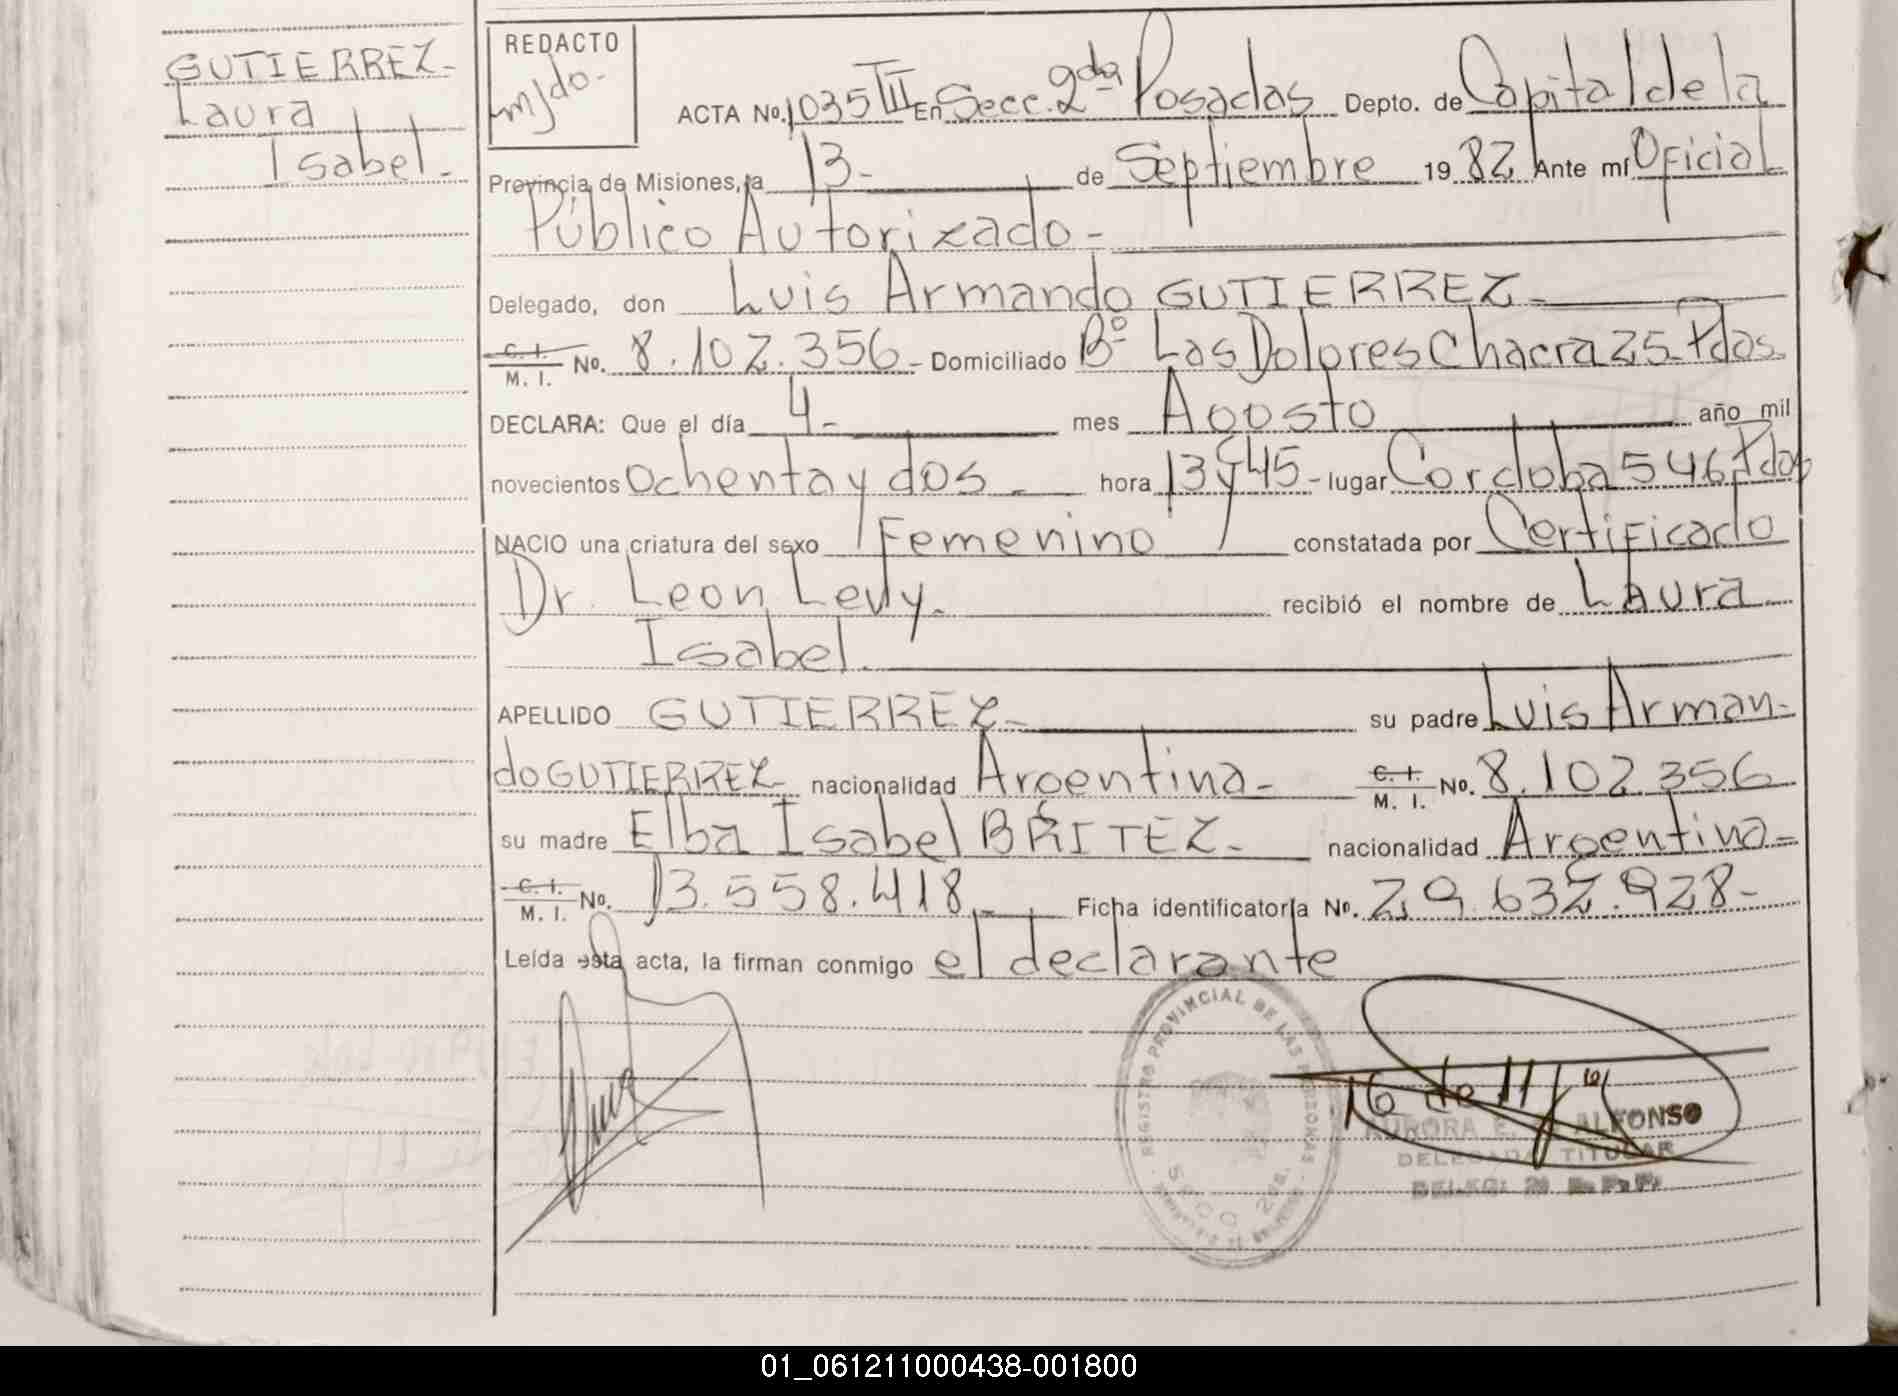 GUTIERREZ-
Laura
Isabel.-
REDACTO
mjdo-
ACTA No. 1035 TIII En Secc. 2da Posadas Depto. de Capital de la
Provincia de Misiones, a 13- de Septiembre 1982 Ante mí Oficial
Público Autorizado-
Delegado, don Luis Armando GUTIERREZ-
C. I. M. I. No. 8.102.356- Domiciliado Bº Los Dolores Chacra 25-Pdas.
DECLARA: Que el día 4- mes Agosto año mil
novecientos ochenta y dos - hora 13 y 45- lugar Cordoba 546 Pdas
NACIO una criatura del sexo Femenino constatada por Certificado
Dr. Leon Levy.
recibió el nombre de Laura
Isabel.
APELLIDO GUTIERREZ- su padre Luis Arman-
do GUTIERREZ- nacionalidad Argentina- C. I. M. I. No. 8.102.356
su madre Elba Isabel BRITEZ- nacionalidad Argentina-
C. I. M. I. No. 13.558.418- Ficha identificatoria No. 29.632.928-
Leída esta acta, la firman conmigo el declarante
REGISTRO PROVINCIAL DE LAS PERSONAS
SECC 2da.
16 de 11
AURORA E. ALFONSO
DELEGADA TITULAR
01_061211000438-001800